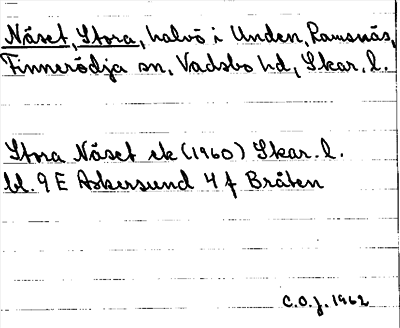 Näset, Stora, halvö i Unden, Ramsnäs,
Finnerödja sn, Vadsbo hd, Skar. l.
Stora Näset ek (1960) Skar. l.
bl. 9 E Askersund 4 f Bråten
C.O.J. 1962